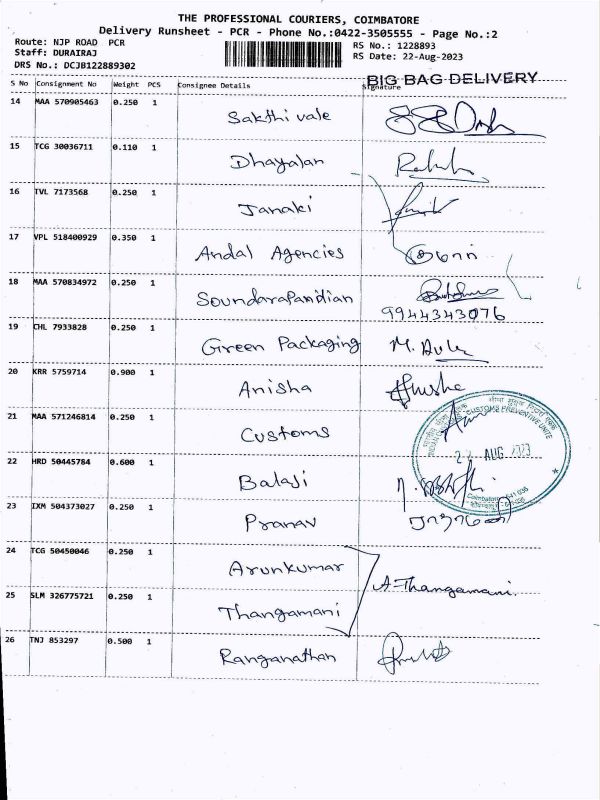 THE PROFESSIONAL COURIERS, COIMBATORE
Delivery Runsheet - PCR - Phone No.:0422-3505555 - Page No.:2
Route: NJP ROAD PCR
Staff: DURAIRAJ
DRS No.: DCJB122889302
RS No.: 1228893
RS Date: 22-Aug-2023
BIG BAG DELIVERY
S No Consignment No Weight PCS Consignee Details Signature
14 MAA 570905463 0.250 1 Sakthi vale
15 TCG 30036711 0.110 1 Dhayalan
16 TVL 7173568 0.250 1 Janaki
17 VPL 518400929 0.350 1 Andal Agencies
18 MAA 570834972 0.250 1 Soundarapandian
9944343076
19 CHL 7933828 0.250 1 Green Packaging M.
20 KRR 5759714 0.900 1 Anisha
21 MAA 571246814 0.250 1 Customs
CUSTOMS PREVENTIVE UNIT
22 AUG 2023
22 HRD 50445784 0.600 1 Balaji
Coimbatore - 641 036
23 IXM 504373027 0.250 1 Pranav
24 TCG 50450046 0.250 1 Arunkumar
A-Thangamani.
25 SLM 326775721 0.250 1 Thangamani
26 TNJ 853297 0.500 1 Ranganathan